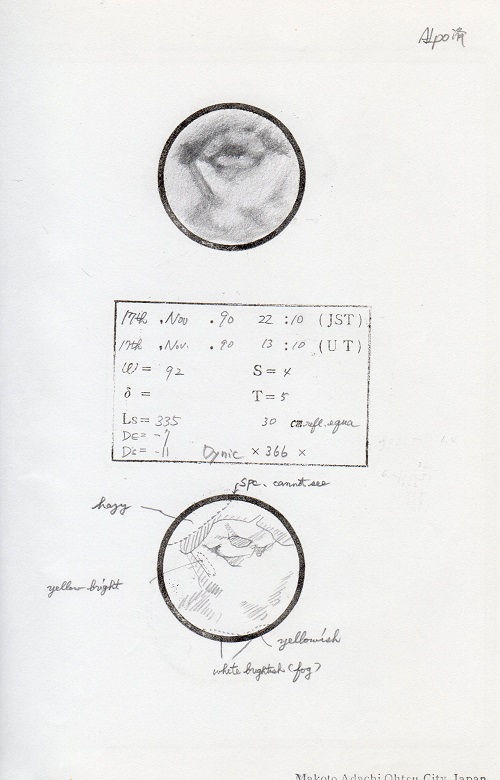 Alpo 済
17th . Nov . 90 22 : 10 (JST)
17th . Nov. . 90 13 : 10 (UT)
ω = 92 S = 4
δ = T = 5
Ls = 335 30 cm refl. equa
DE = -11
Ds = -11 Dynic × 366 ×
SPC. cannot see
hazy
yellow bright
yellowish
white brightish (fog)
Makoto Adachi Ohtsu City, Japan